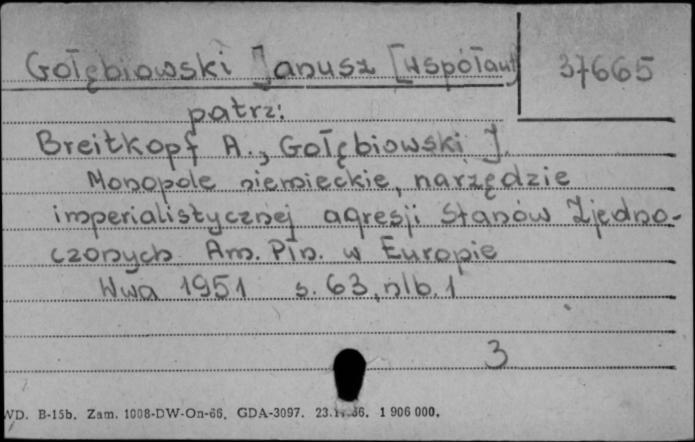 Gołębiowski Janusz [współaut] 37665
patrz:
Breitkopf A., Gołębiowski J.
Monopole niemieckie, narzędzie
imperialistycznej agresji Stanów Zjedno-
czonych Am. Płn. w Europie
Wwa 1951 s. 63, nlb. 1
3
WD. B-15b. Zam. 1008-DW-On-66. GDA-3097. 1 906 000.